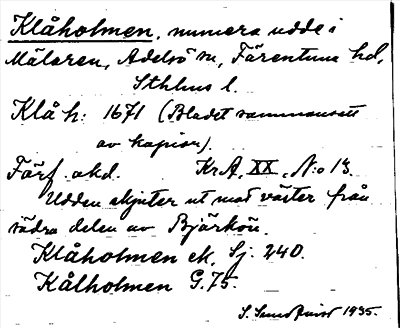 Klåholmen, numera udde i
Mälaren, Adelsö sn, Färentuna hd,
Sthlms l.
Klåh: 1671 (Bladet sammansatt
av kopior).
Färf. ahd. KrA, XX, N:o 13.
Udden skjuter ut mot väster från
södra delen av Björkön.
Klåholmen ek. Sj. 240.
Kålholmen G.75.
S. Sundqvist 1935.